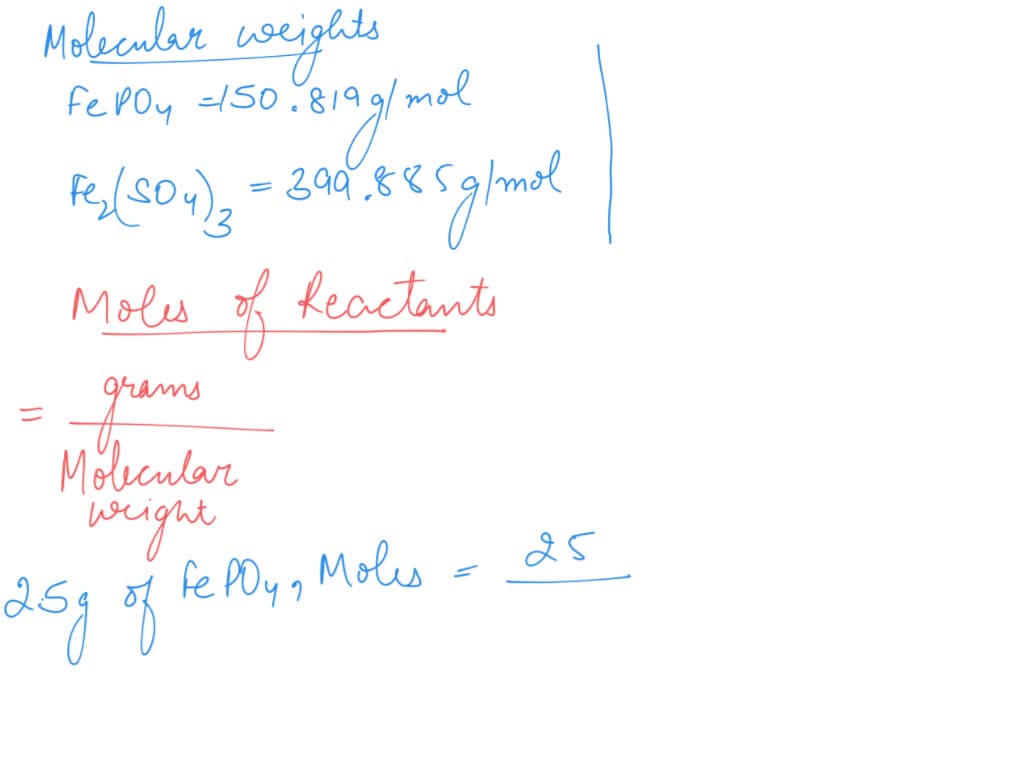 Molecular weights
FePO4 = 150.819g/mol
Fe2(SO4)3 = 399.885g/mol
Moles of Reactants
= grams
Molecular
weight
25g of FePO4, Moles = 25